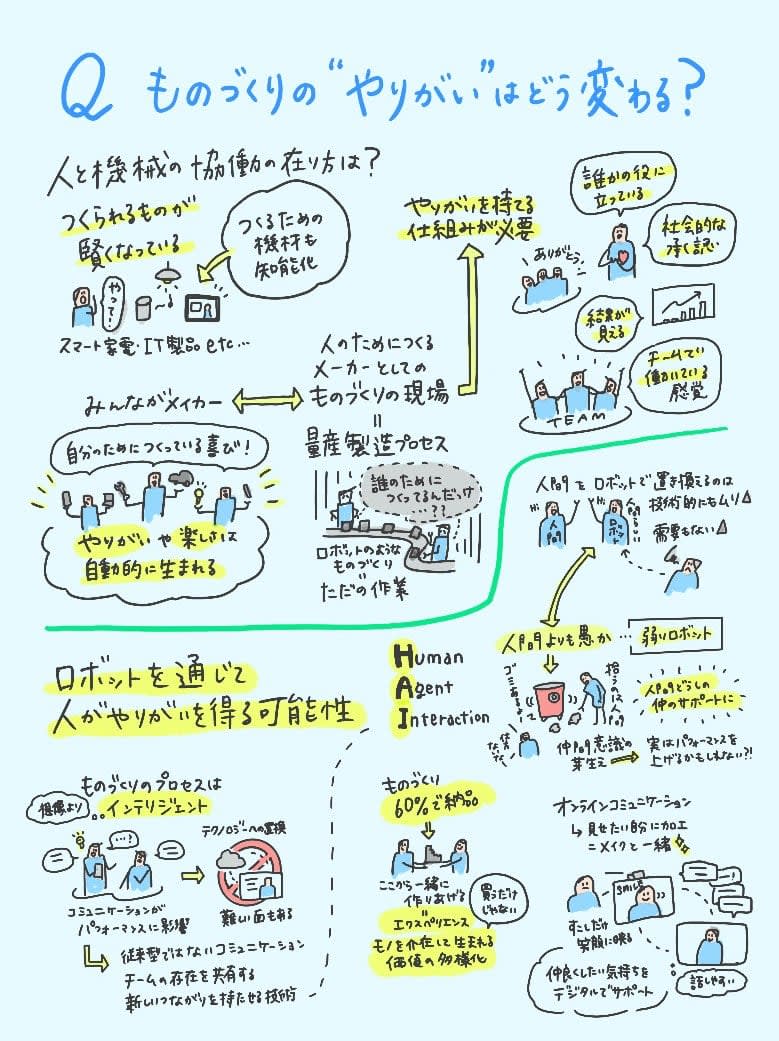 Q ものづくりの“やりがい”はどう変わる？
人と機械の協働の在り方は？
つくられるものが
賢くなっている
つくるための
機材も
知能化
やって！
スマート家電・IT製品etc…
みんながメイカー
自分のためにつくっている喜び！
やりがいや楽しさは
自動的に生まれる
人のためにつくる
メーカーとしての
ものづくりの現場
=
量産製造プロセス
誰のために
つくってるんだっけ
…??
ロボットのような
ものづくり
ただの作業
やりがいを持てる
仕組みが必要
誰かの役に
立っている
ありがとう
社会的な
承認
結果が
見える
チームで
働いている
感覚
TEAM
人間をロボットで置き換えるのは
技術的にもムリ
需要もない
人間
人間らしい
ロボット
人間よりも愚か…弱いロボット
ゴミあるよ〜
拾うのは人間
仕方ないな
人間どうしの
仲のサポートに
仲間意識の
芽生え
実はパフォーマンスを
上げるかもしれない?!
ロボットを通じて
人がやりがいを得る可能性
Human
Agent
Interaction
ものづくりのプロセスは
想像より
インテリジェント
…!
コミュニケーションが
パフォーマンスに影響
テクノロジーへの置換
難しい面もある
従来型ではないコミュニケーション
チームの存在を共有する
新しいつながりを持たせる技術
ものづくり
60%で納品
ここから一緒に
作りあげる
エクスペリエンス
買うだけ
じゃない
モノを介在して生まれる
価値の多様化
オンラインコミュニケーション
見せたい自分に加工
=メイクと一緒
SMILE
すこしだけ
笑顔に映る
仲良くしたい気持ちを
デジタルでサポート
話しやすい